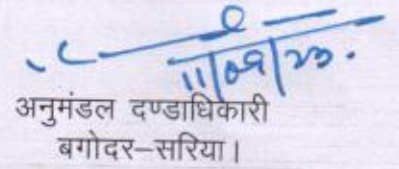 11/09/23.
अनुमंडल दण्डाधिकारी
बगोदर–सरिया।